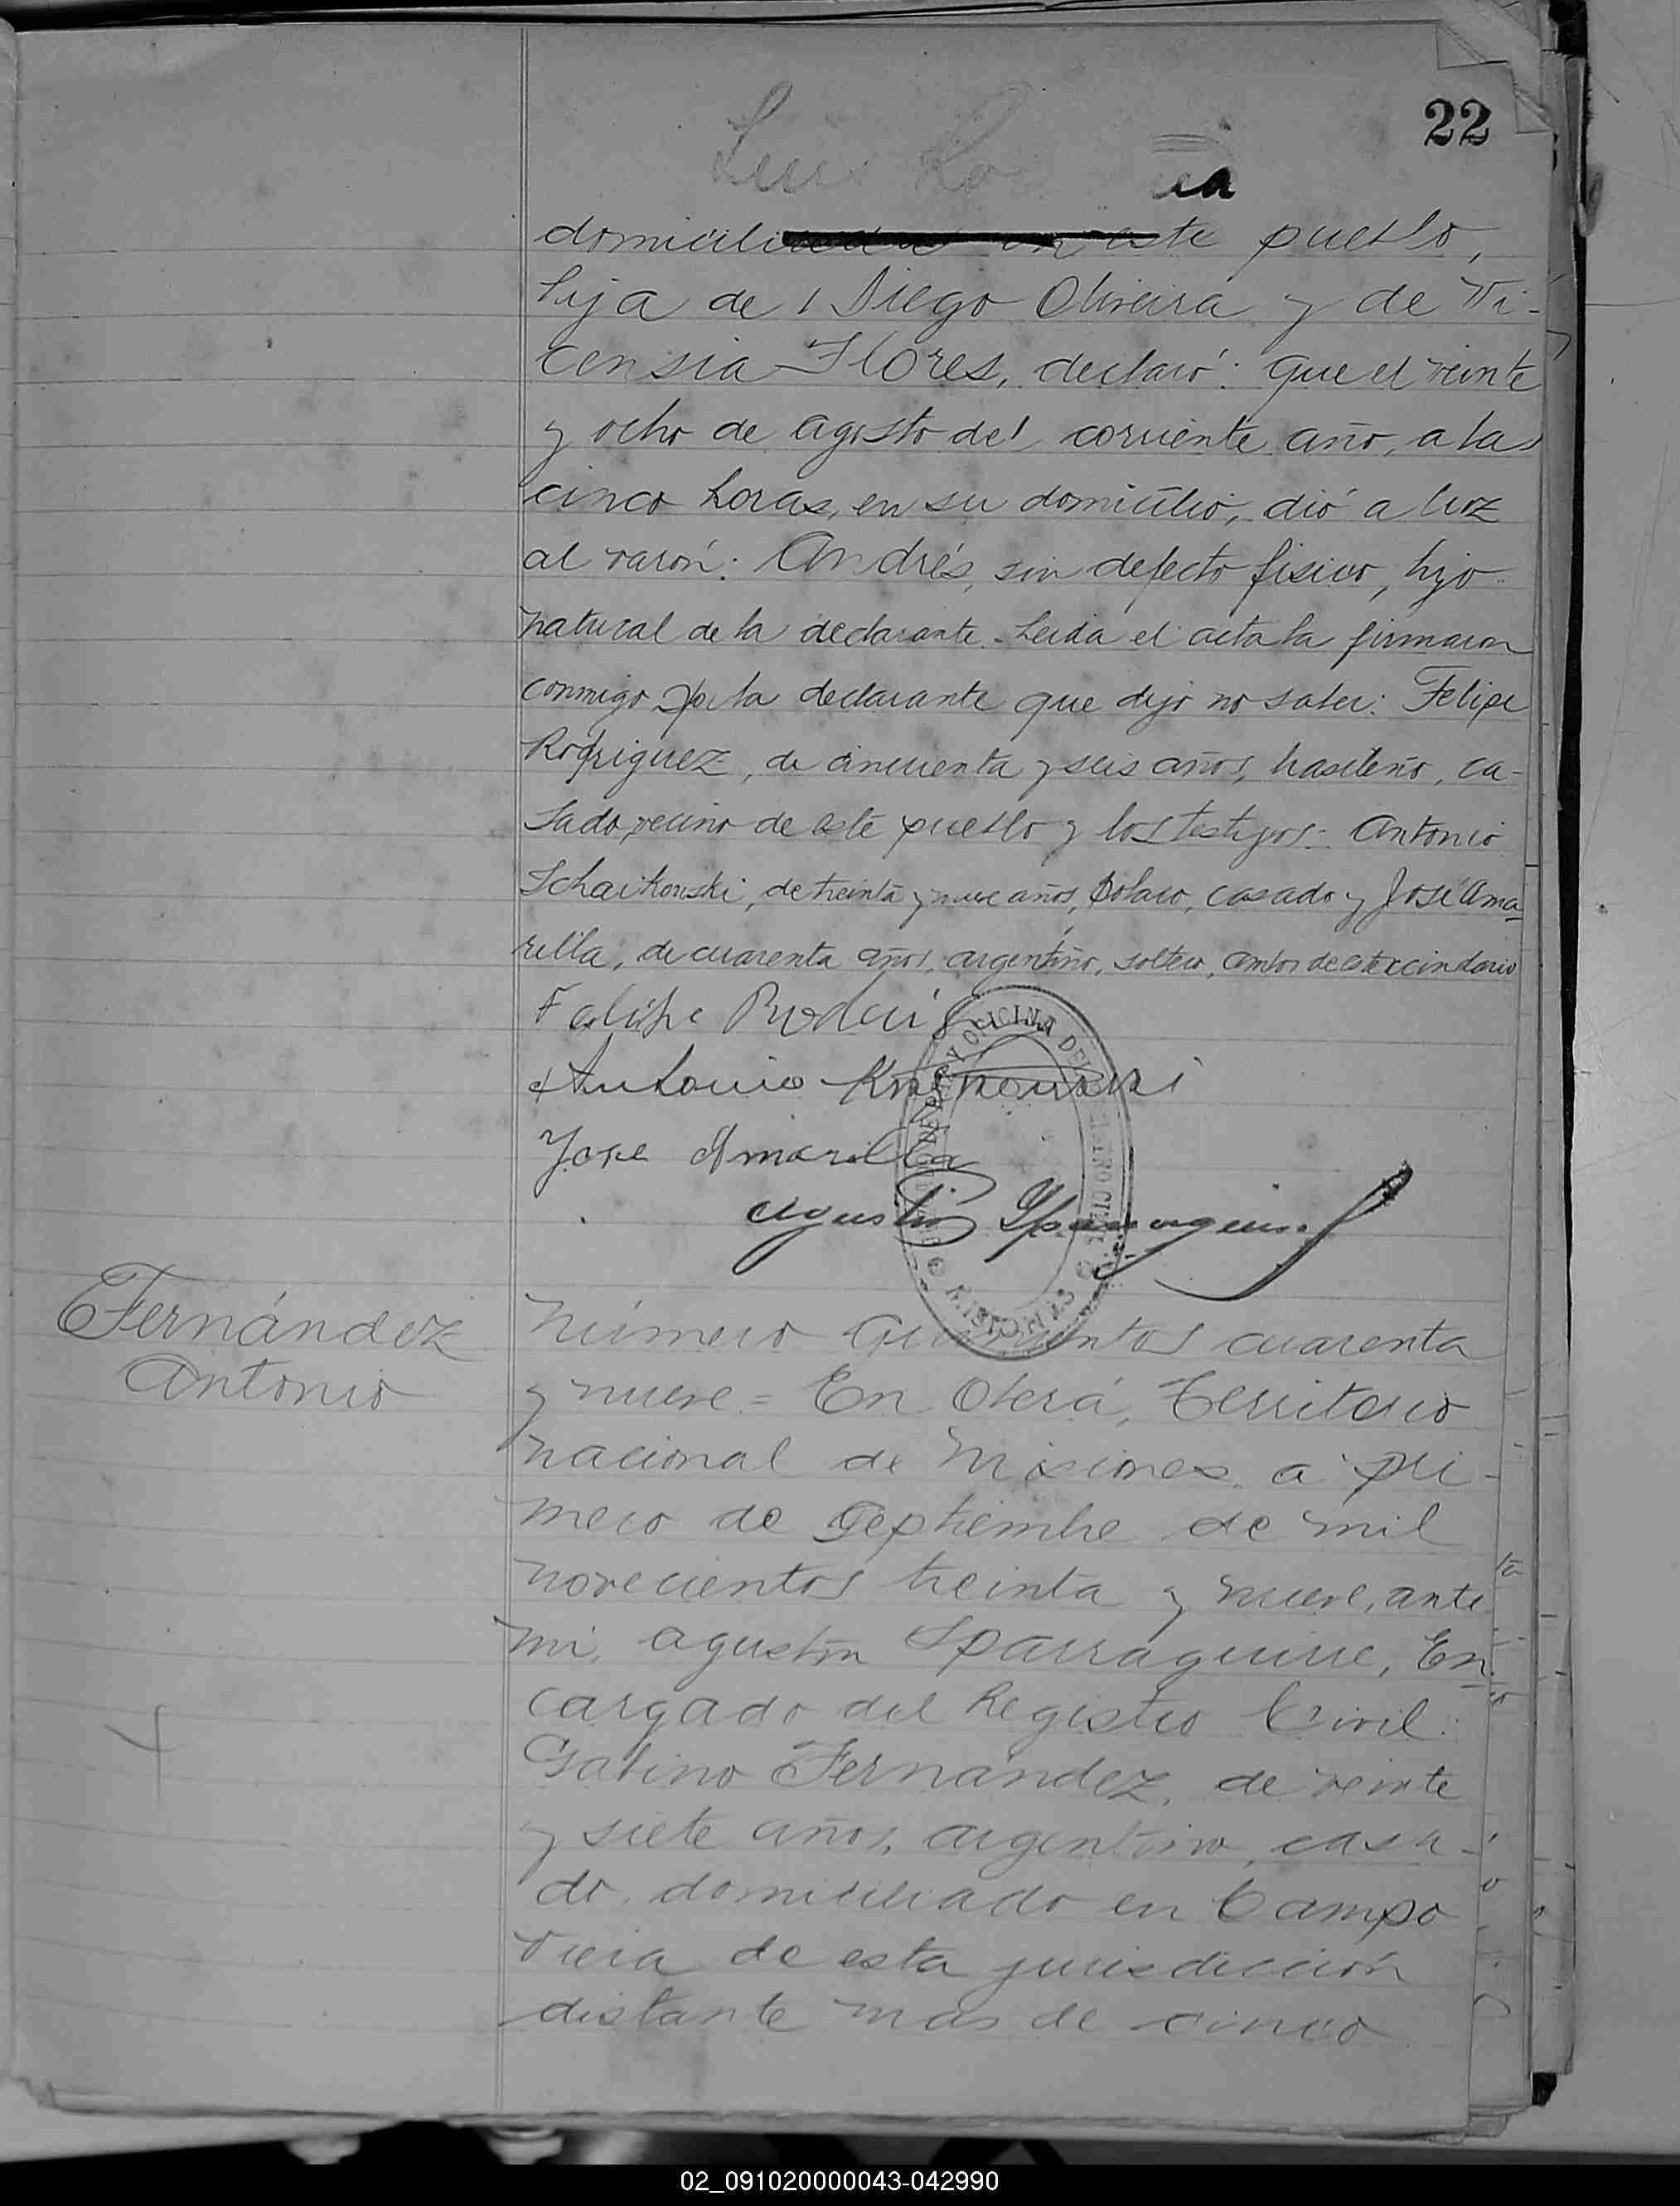 22
Luis
domiciliada en este pueblo,
hija de Diego Oliveira y de Vi-
censia Flores, declaró: que el veinte
y ocho de agosto del corriente año, a las
cinco horas, en su domicilio, dió a luz
al varón: Andrés, sin defecto fisico, hijo
natural de la declarante. Leida el acta la firmaron
conmigo p. la declarante que dijo no saber: Felipe
Rodriguez, de cincuenta y seis años, brasileño, ca-
sado, vecino de este pueblo y los testigos: Antonio
Schaikouski, de treinta y nueve años, polaco, casado y José Ama-
rilla, de cuarenta años, argentino, soltero, ambos de este vecindario
Felipe Rodrig
Antonio
Jose Amarilla
Agustin Yparraguirre
OFICINA DEL REGISTRO CIVIL
MISIONES
Fernández
Antonio
Número Quinientos cuarenta
y nueve = En Oberá, Territorio
nacional de Misiones, a pri-
mero de Septiembre de mil
novecientos treinta y nueve, ante
mi, Agustin Yparraguirre, En-
cargado del Registro Civil:
Gabino Fernández, de veinte
y siete años, argentino, casa-
do, domiciliado en Campo
Viera de esta jurisdicción
distante mas de cinco
02_091020000043-042990